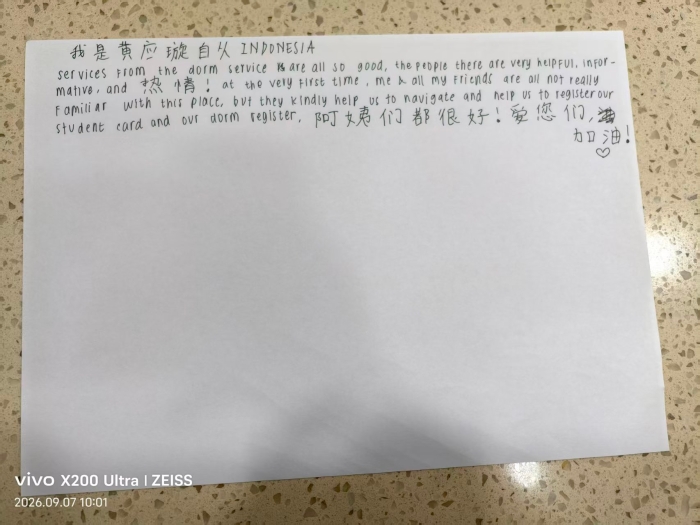 我是黄应璇自从 INDONESIA
services from the dorm service are all so good, the people there are very helpful, infor-
mative, and 热情! at the very first time, me & all my friends are all not really
familiar with this place, but they kindly help us to navigate and help us to register our
student card and our dorm register, 阿姨们都很好!爱您们,
加油!
♡
vivo X200 Ultra | ZEISS
2026.09.07 10:01